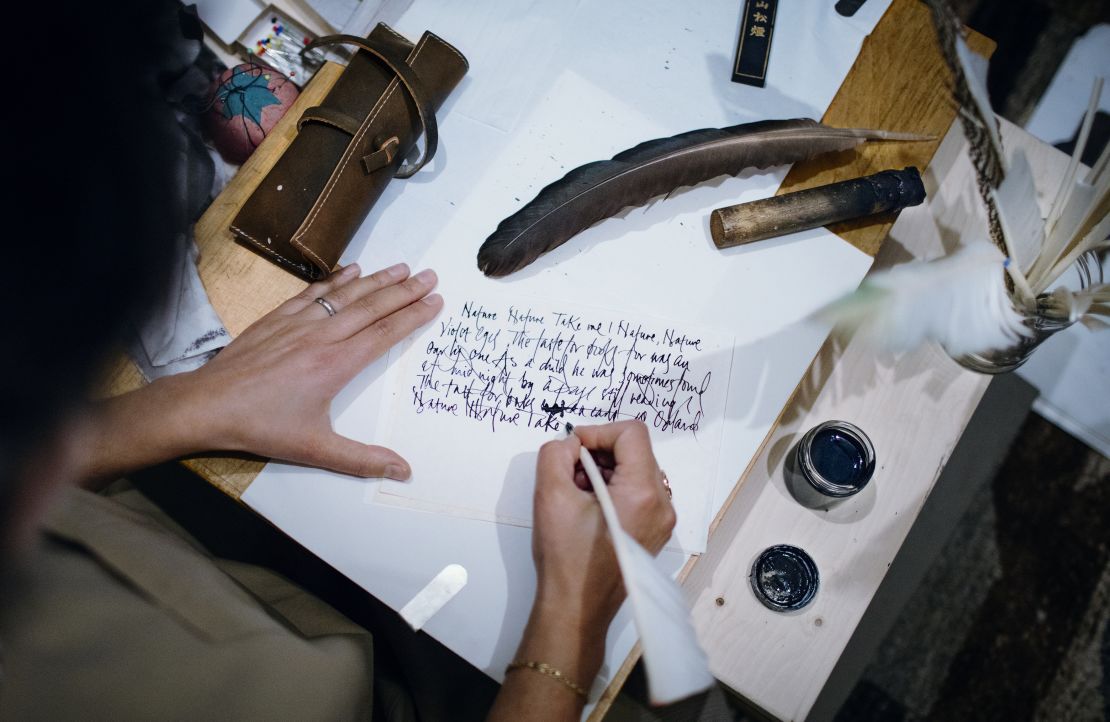 山松煙
Nature Nature Take me ! Nature, Nature
Violet Eyes The taste for books for was an
early one As a child he was sometimes found
at midnight by a page still reading
The taste for books was an early Orland
Nature Nature Take